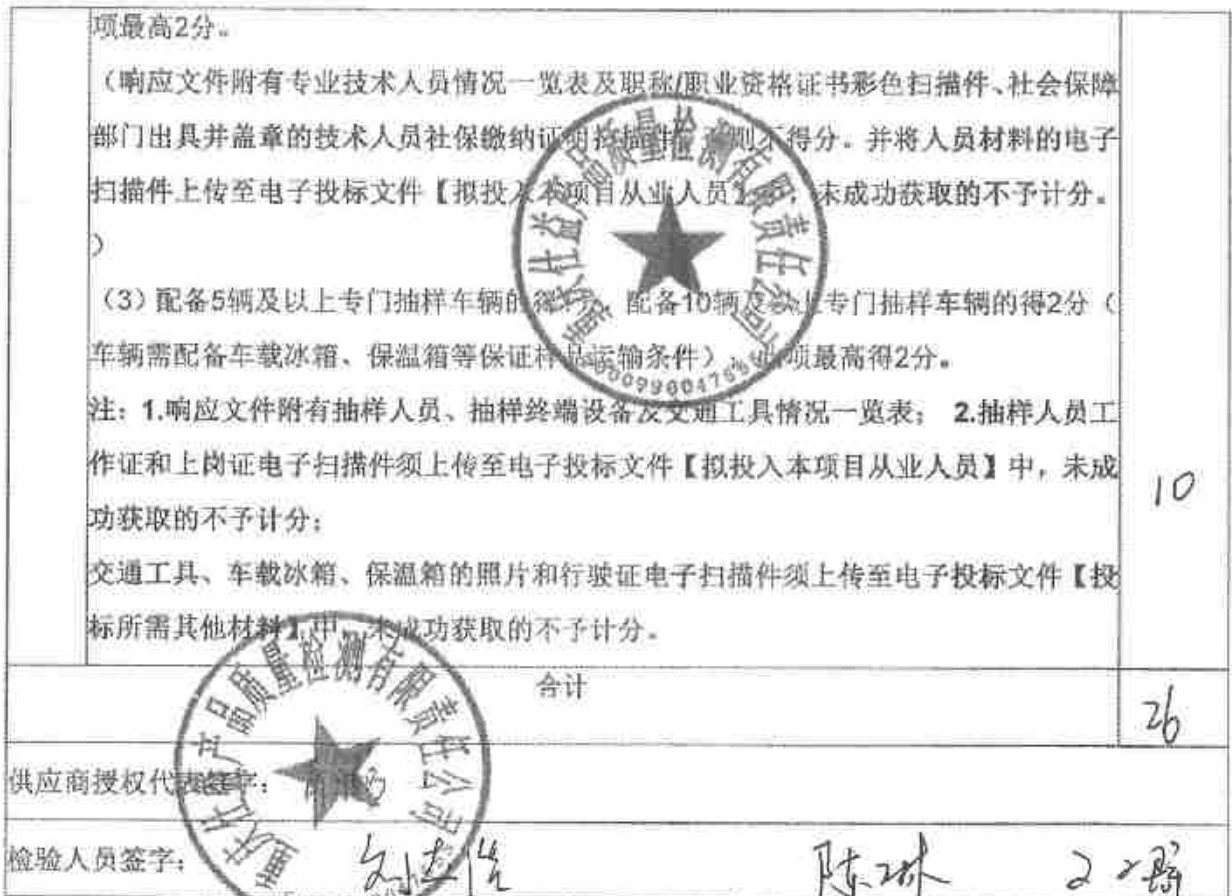 项最高2分。
(响应文件附有专业技术人员情况一览表及职称/职业资格证书彩色扫描件、社会保障
部门出具并盖章的技术人员社保缴纳证明扫描件,否则不得分。并将人员材料的电子
扫描件上传至电子投标文件【拟投入本项目从业人员】中,未成功获取的不予计分。
)
(3)配备5辆及以上专门抽样车辆的得 配备10辆及以上专门抽样车辆的得2分(
车辆需配备车载冰箱、保温箱等保证样品运输条件),此项最高得2分。
注:1.响应文件附有抽样人员、抽样终端设备及交通工具情况一览表; 2.抽样人员工
作证和上岗证电子扫描件须上传至电子投标文件【拟投入本项目从业人员】中,未成
功获取的不予计分;
交通工具、车载冰箱、保温箱的照片和行驶证电子扫描件须上传至电子投标文件【投
标所需其他材料】中,未成功获取的不予计分。
10
合计
26
供应商授权代表签字:
检验人员签字:
重庆仕益产品质量检测有限责任公司
重庆仕益产品质量检测有限责任公司